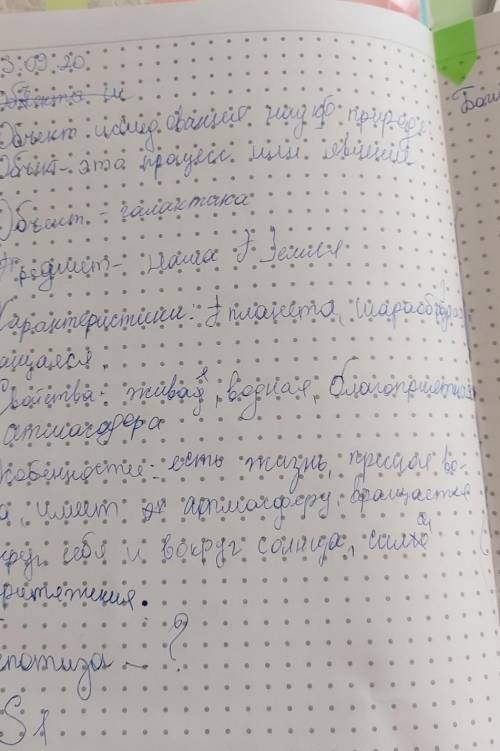 3.09.20.
Объект исследований наук о природе.
Объект - эта процесс или явления
Объект - галактика
Предмет - наша Земля
Характеристики: планета, шарообразная
ащаяся.
Свойства: живая, водная, благоприятная
атмосфера
собенности: есть жизнь, пресная во-
а, имеет атмосферу, вращается
круг себя и вокруг солнца, сила
ритяжения.
потиза - ?
S 1
Баш